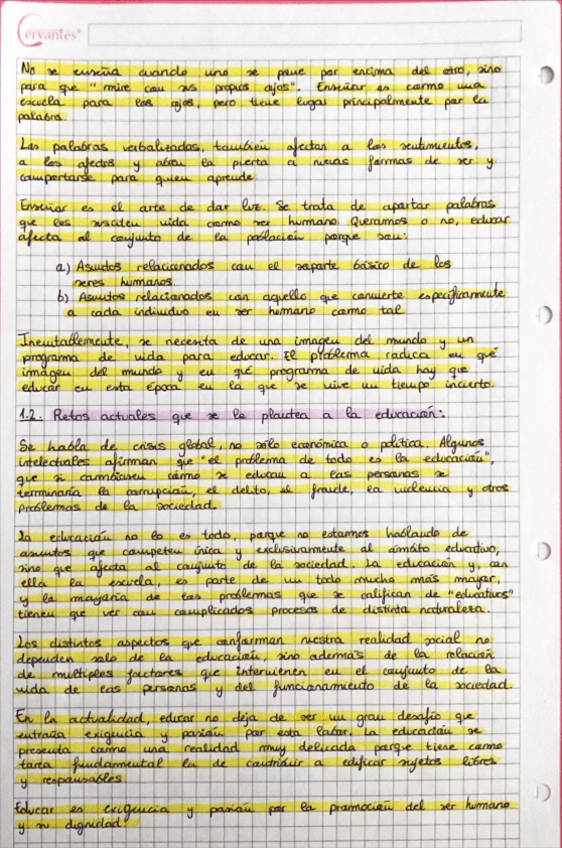 Cervantes®
No se enseña cuando uno se pone por encima del otro, sino
para que "mire con sus propios ojos". Enseñar es como una
escuela para los ojos, pero tiene lugar principalmente por la
palabra.
Las palabras verbalizadas, también afectan a los sentimientos,
a los afectos y abren la puerta a nuevas formas de ser y
comportarse para quien aprende.
Enseñar es el arte de dar luz. Se trata de aportar palabras
que les susciten vida como ser humano. Queramos o no, educar
afecta al conjunto de la población porque son:
a) Asuntos relacionados con el soporte básico de los
seres humanos.
b) Asuntos relacionados con aquello que convierte específicamente
a cada individuo en ser humano como tal.
Inevitablemente, se necesita de una imagen del mundo y un
programa de vida para educar. El problema radica en qué
imagen del mundo y en qué programa de vida hay que
educar en esta época en la que se vive un tiempo incierto.
1.2. Retos actuales que se le plantea a la educación:
Se habla de crisis global, no sólo económica o política. Algunos
intelectuales afirman que "el problema de todo es la educación",
que si cambiasen cómo se educan a las personas se
terminaría la corrupción, el delito, el fraude, la violencia y otros
problemas de la sociedad.
La educación no lo es todo, porque no estamos hablando de
asuntos que competen única y exclusivamente al ámbito educativo,
sino que afecta al conjunto de la sociedad. La educación y, con
ella la escuela, es parte de un todo mucho más mayor,
y la mayoría de los problemas que se califican de "educativos"
tienen que ver con complicados procesos de distinta naturaleza.
Los distintos aspectos que conforman nuestra realidad social no
dependen solo de la educación, sino además de la relación
de múltiples factores que intervienen en el conjunto de la
vida de las personas y del funcionamiento de la sociedad.
En la actualidad, educar no deja de ser un gran desafío que
entraña exigencia y pasión por esta labor. La educación se
presenta como una realidad muy delicada porque tiene como
tarea fundamental la de contribuir a edificar sujetos libres
y responsables.
Educar es exigencia y pasión por la promoción del ser humano
y su dignidad.